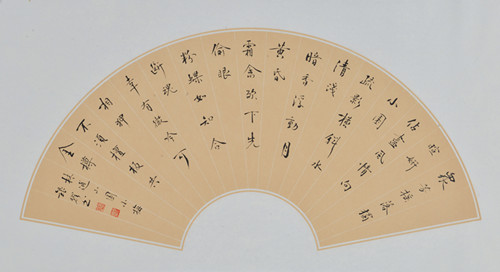 衆芳摇落獨
暄妍
佔尽風情向
小園
疏影横斜水
清淺
暗香浮動月
黄昏
霜禽欲下先
偷眼
粉蝶如知合
断魂
幸有微吟可
相狎
不須檀板共
金樽
林逋山園小梅